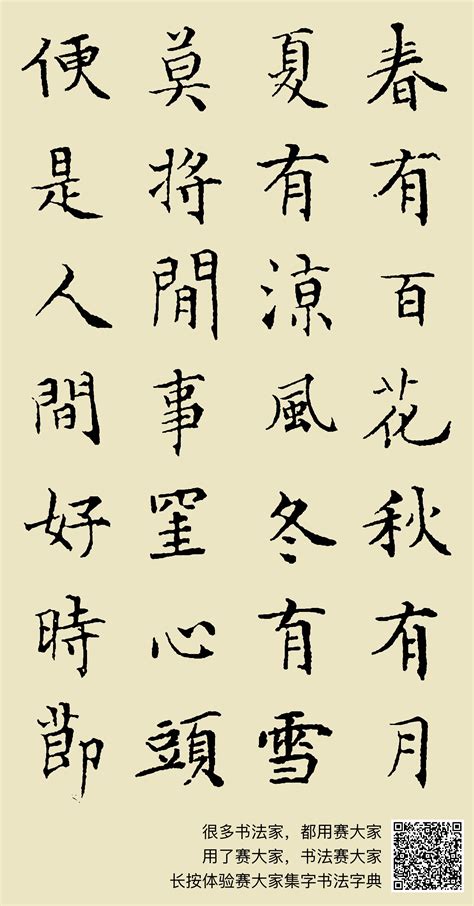 春有百花秋有月
夏有涼風冬有雪
莫將閒事罣心頭
便是人間好時節
很多书法家，都用赛大家
用了赛大家，书法赛大家
长按体验赛大家集字书法字典